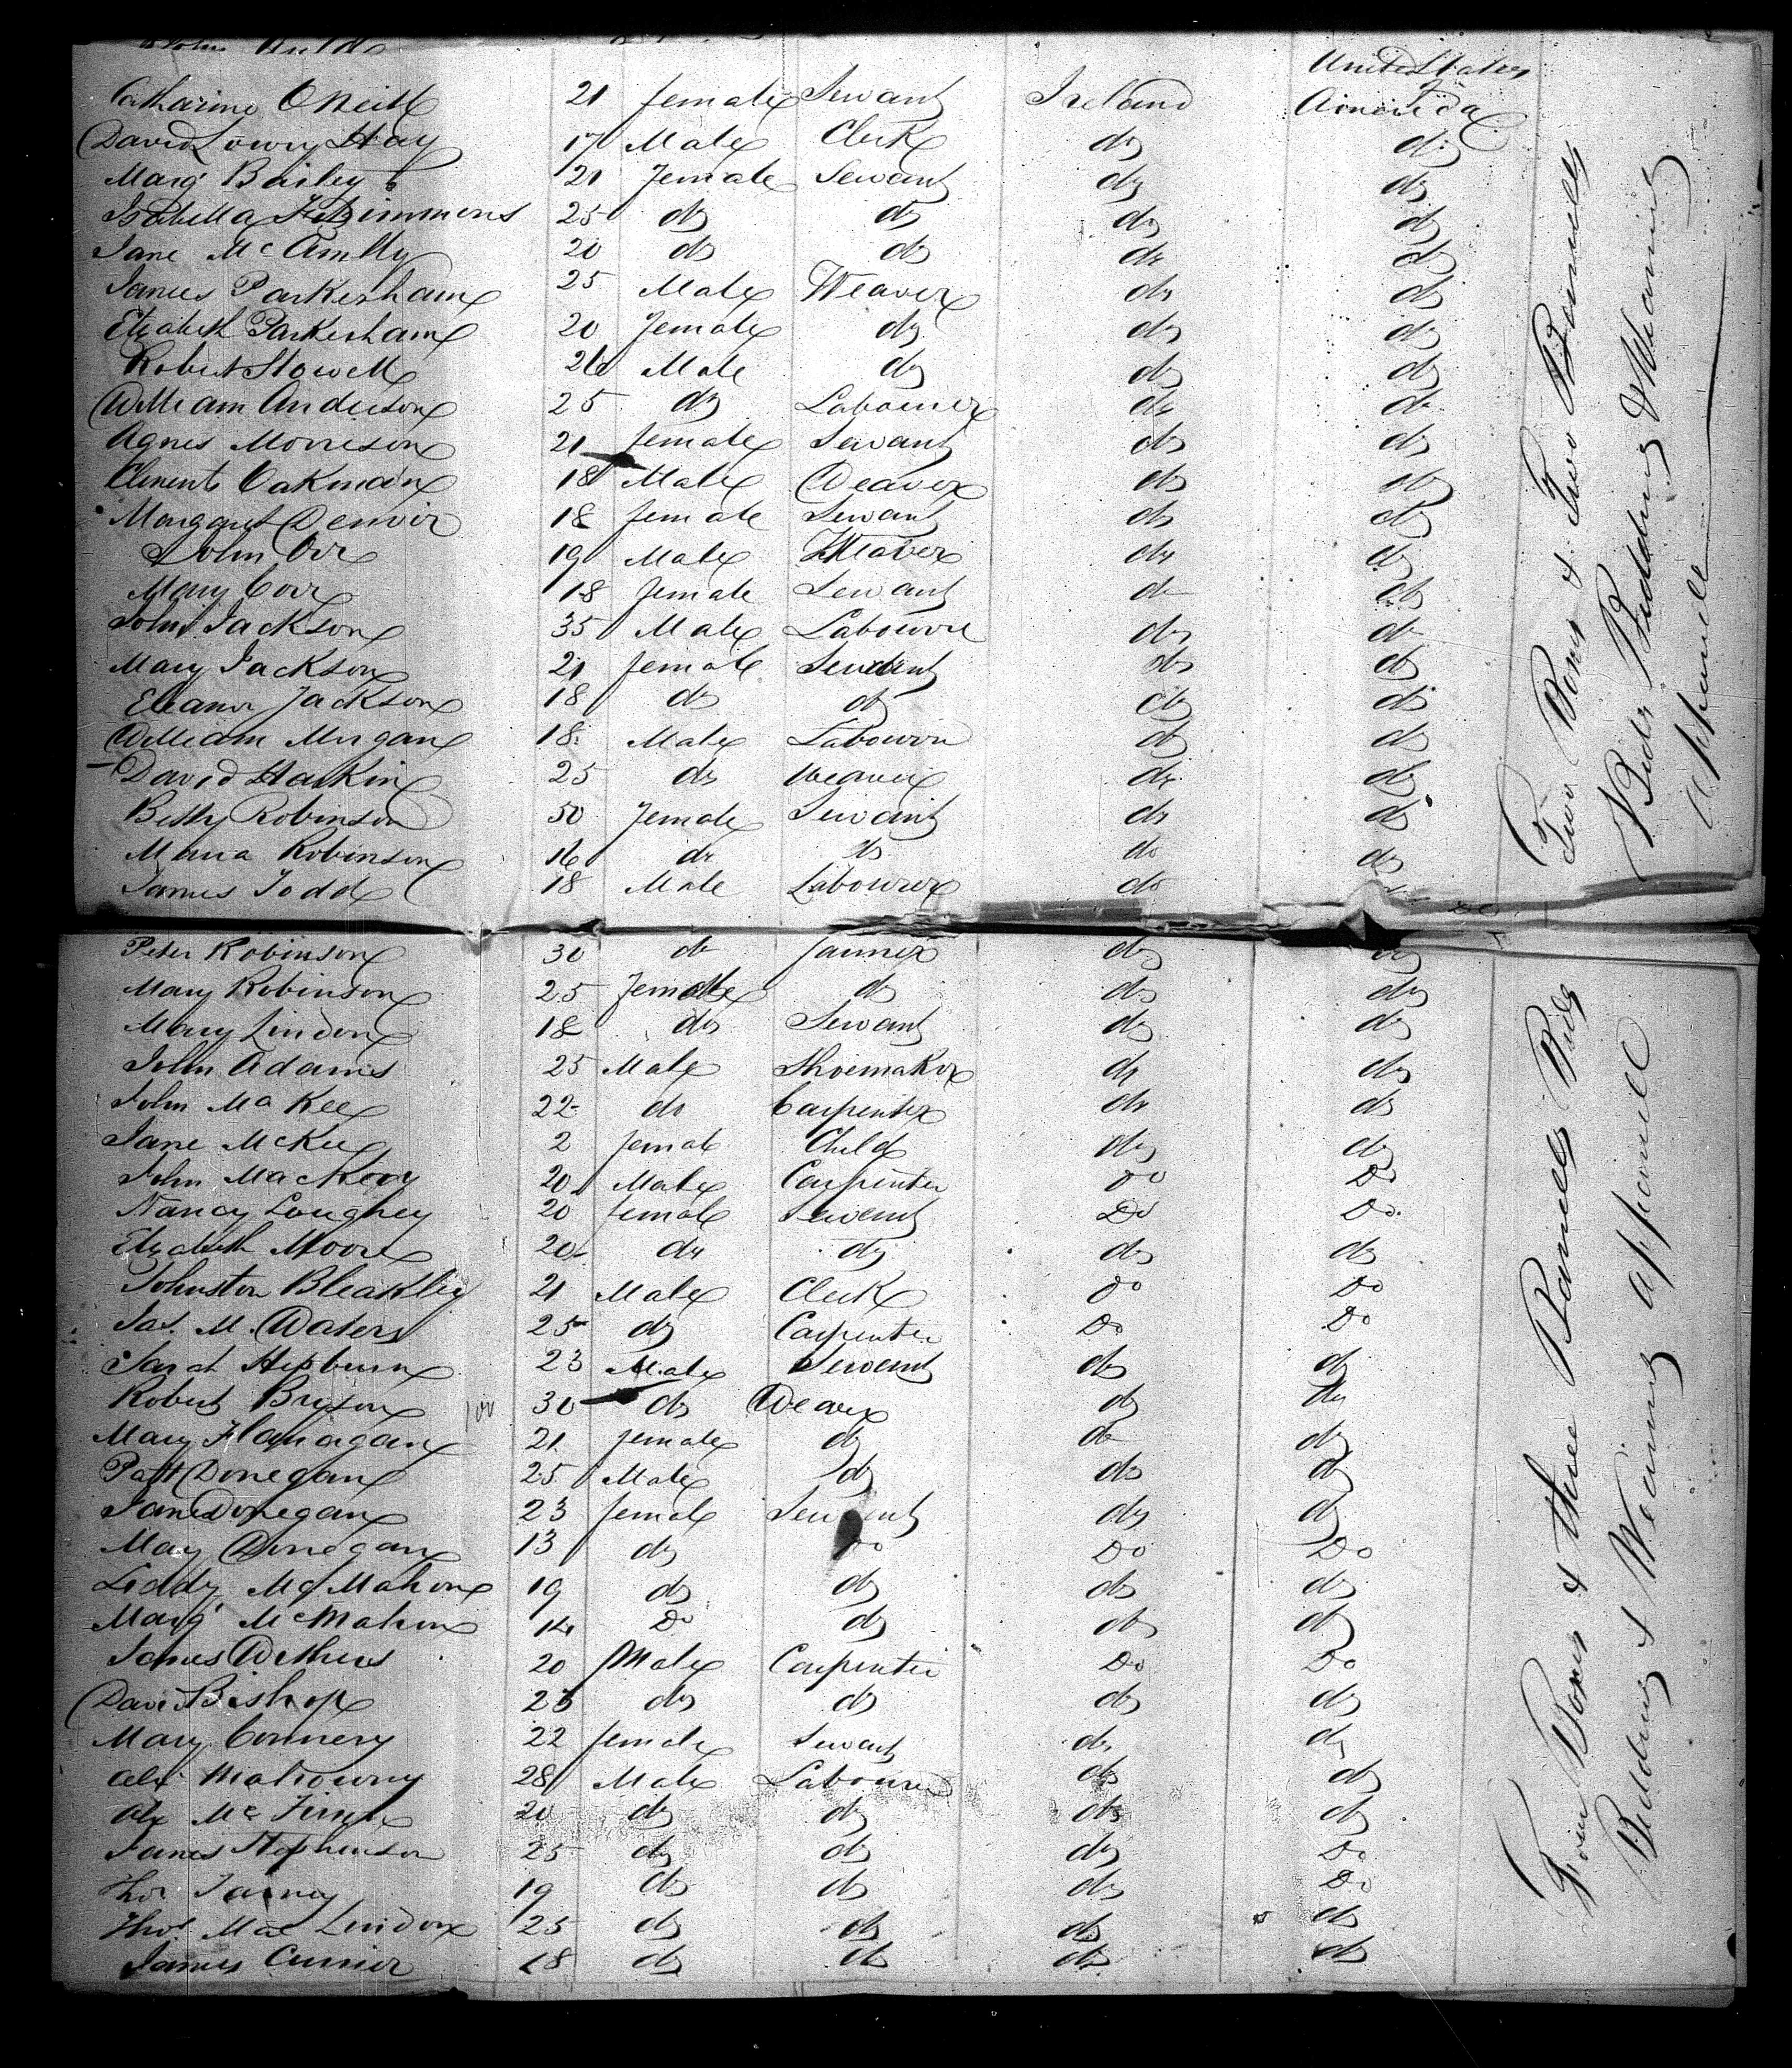 United States
Catharine O Neill 21 female Servant Ireland America
David Lowry Hay 17 Male Clerk do do
Marg Bailey 21 female Servant do do
Isabella Fitzimmons 25 do do do do
Jane Mc Amlly 20 do do do do
James Parkerham 25 Male Weaver do do
Elizabeth Parkerham 20 female do do do
Robert Stowell 26 Male do do do
William Anderson 25 do Labourer do do
Agnes Morrison 21 female Servant do do
Clements Oakman 18 Male Weaver do do
Margaret Denvir 18 female Servant do do
John Orr 19 Male Weaver do do
Mary Corr 18 female Servant do do
John Jackson 35 Male Labourer do do
Mary Jackson 21 female Servant do do
Eleanor Jackson 18 do do do do
William Morgan 18 Male Labourer do do
David Harkin 25 do Weaver do do
Betty Robinson 50 female Servant do do
Maria Robinson 16 do do do do
James Todd 18 Male Labourer do
Two Boxes & Two Barrells
Beds Bedding & Wearing
apparell
Peter Robinson 30 do farmer do do
Mary Robinson 25 female do do do
Mary Lindon 18 do Servant do do
John Adams 25 Male Shoemaker do do
John Ma Kee 22 do Carpenter do do
Jane McKee 2 female Child do do
John MacKeoy 20 Male Carpenter Do Do
Nancy Loughey 20 female Servant Do Do
Elizabeth Moore 20 do do do do
Johnston Bleakley 21 Male Clerk Do Do
Jas. M. Waters 25 do Carpenter Do Do
Sarah Hepburn 23 Male Servant do do
Robert Bryson 30 do Weaver do do
Mary Flanagan 21 female do do do
Patt Donegan 25 Male do do do
Jane Donegan 23 female Servant do do
May Donegan 13 do Do Do Do
Liddy McMahon 19 do do do do
Marg McMahon 14 Do do do do
James Withers 20 Male Carpenter Do Do
David Bishop 23 do do do do
Mary Connery 22 female Servant do do
Alex Mahowny 28 Male Labourer do do
Alex Mc 20 do do do do
James Stephenson 25 do do do Do
Thos 19 do do do Do
Thos Mac Lindon 25 do do do do
James Currier 18 do do do do
Four Boxes & three Barrells Beds
Bedding & Wearing apparell